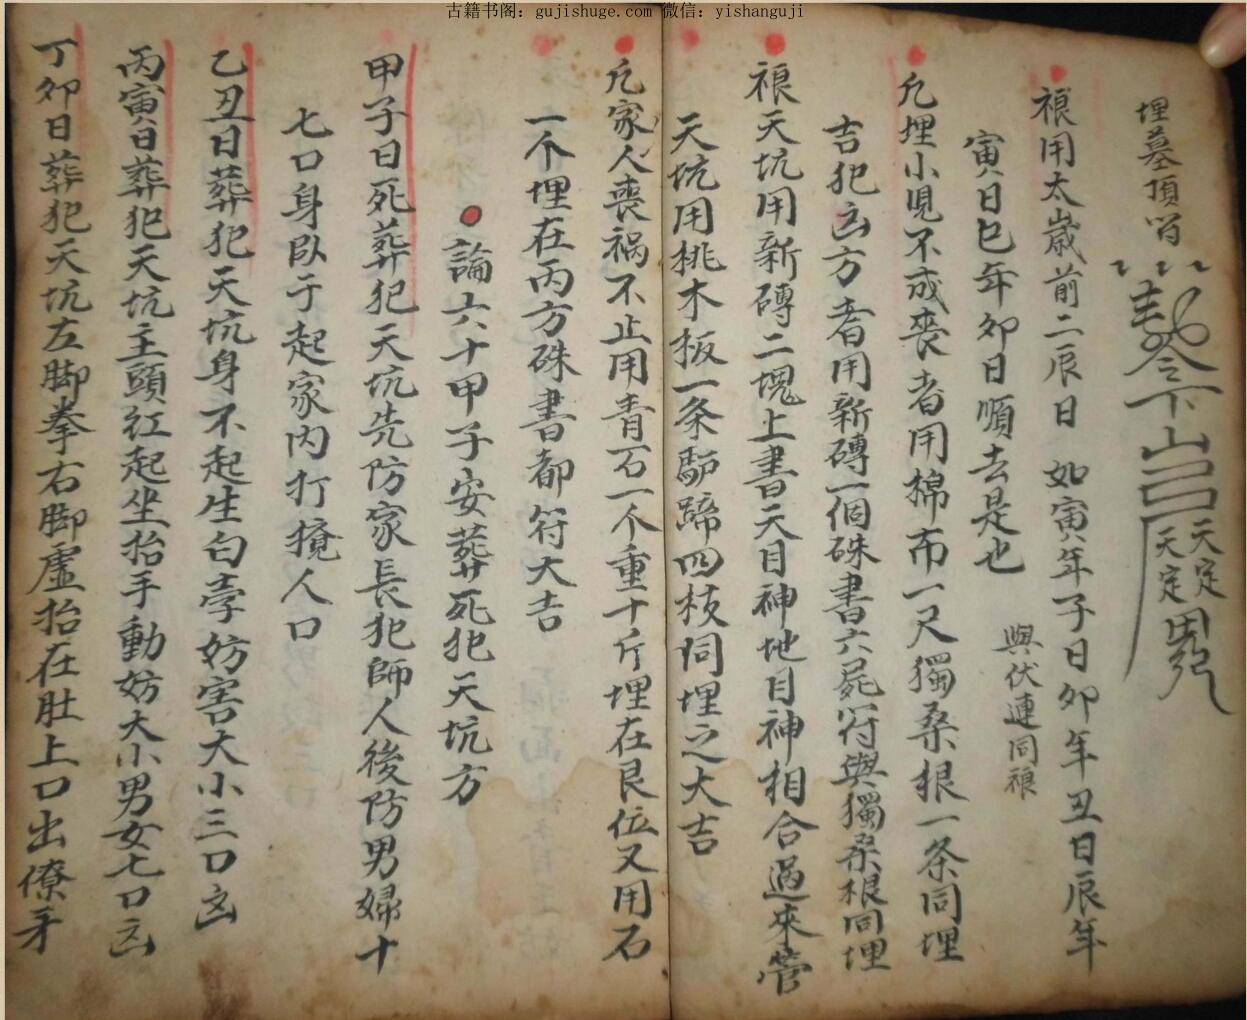 古籍书阁：gujishuge.com 微信：yishanguji
埋墓頂
令下山
天定
天定
禳用太歲前二辰日 如寅年子日夘年丑日辰年
寅日巳年夘日順去是也
與伏連同禳
凢埋小児不成喪者用棉布一尺獨桑根一条同埋
吉犯凶方者用新磚一個硃書六屍符與獨桑根同埋
禳天坑用新磚二塊上書天目神地目神相合過來管
天坑用桃木板一条馿蹄四枝同埋之大吉
凢家人喪禍不止用青石一个重十斤埋在艮位又用石
一个埋在丙方硃書都符大吉
論六十甲子安葬死犯天坑方
甲子日死葬犯天坑先防家長犯師人後防男婦十
七口身臥于起家内打攪人口
乙丑日葬犯天坑身不起生白妨害大小三口凶
丙寅日葬犯天坑主頭紅起坐抬手動妨大小男女七口凶
丁夘日葬犯天坑左脚拳右脚虛抬在肚上口出僚牙